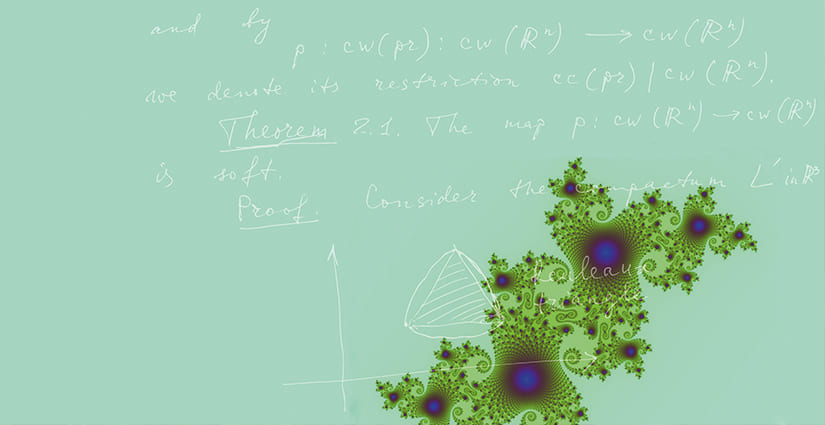 and by
p : cw(pr) : cw(ℝⁿ) ⟶ cw(ℝⁿ)
we denote its restriction cc(pr) | cw(ℝⁿ).
Theorem 2.1. The map p : cw(ℝⁿ) → cw(ℝⁿ)
is soft.
Proof. Consider the compactum L′ in ℝ³
Reuleaux
triangle